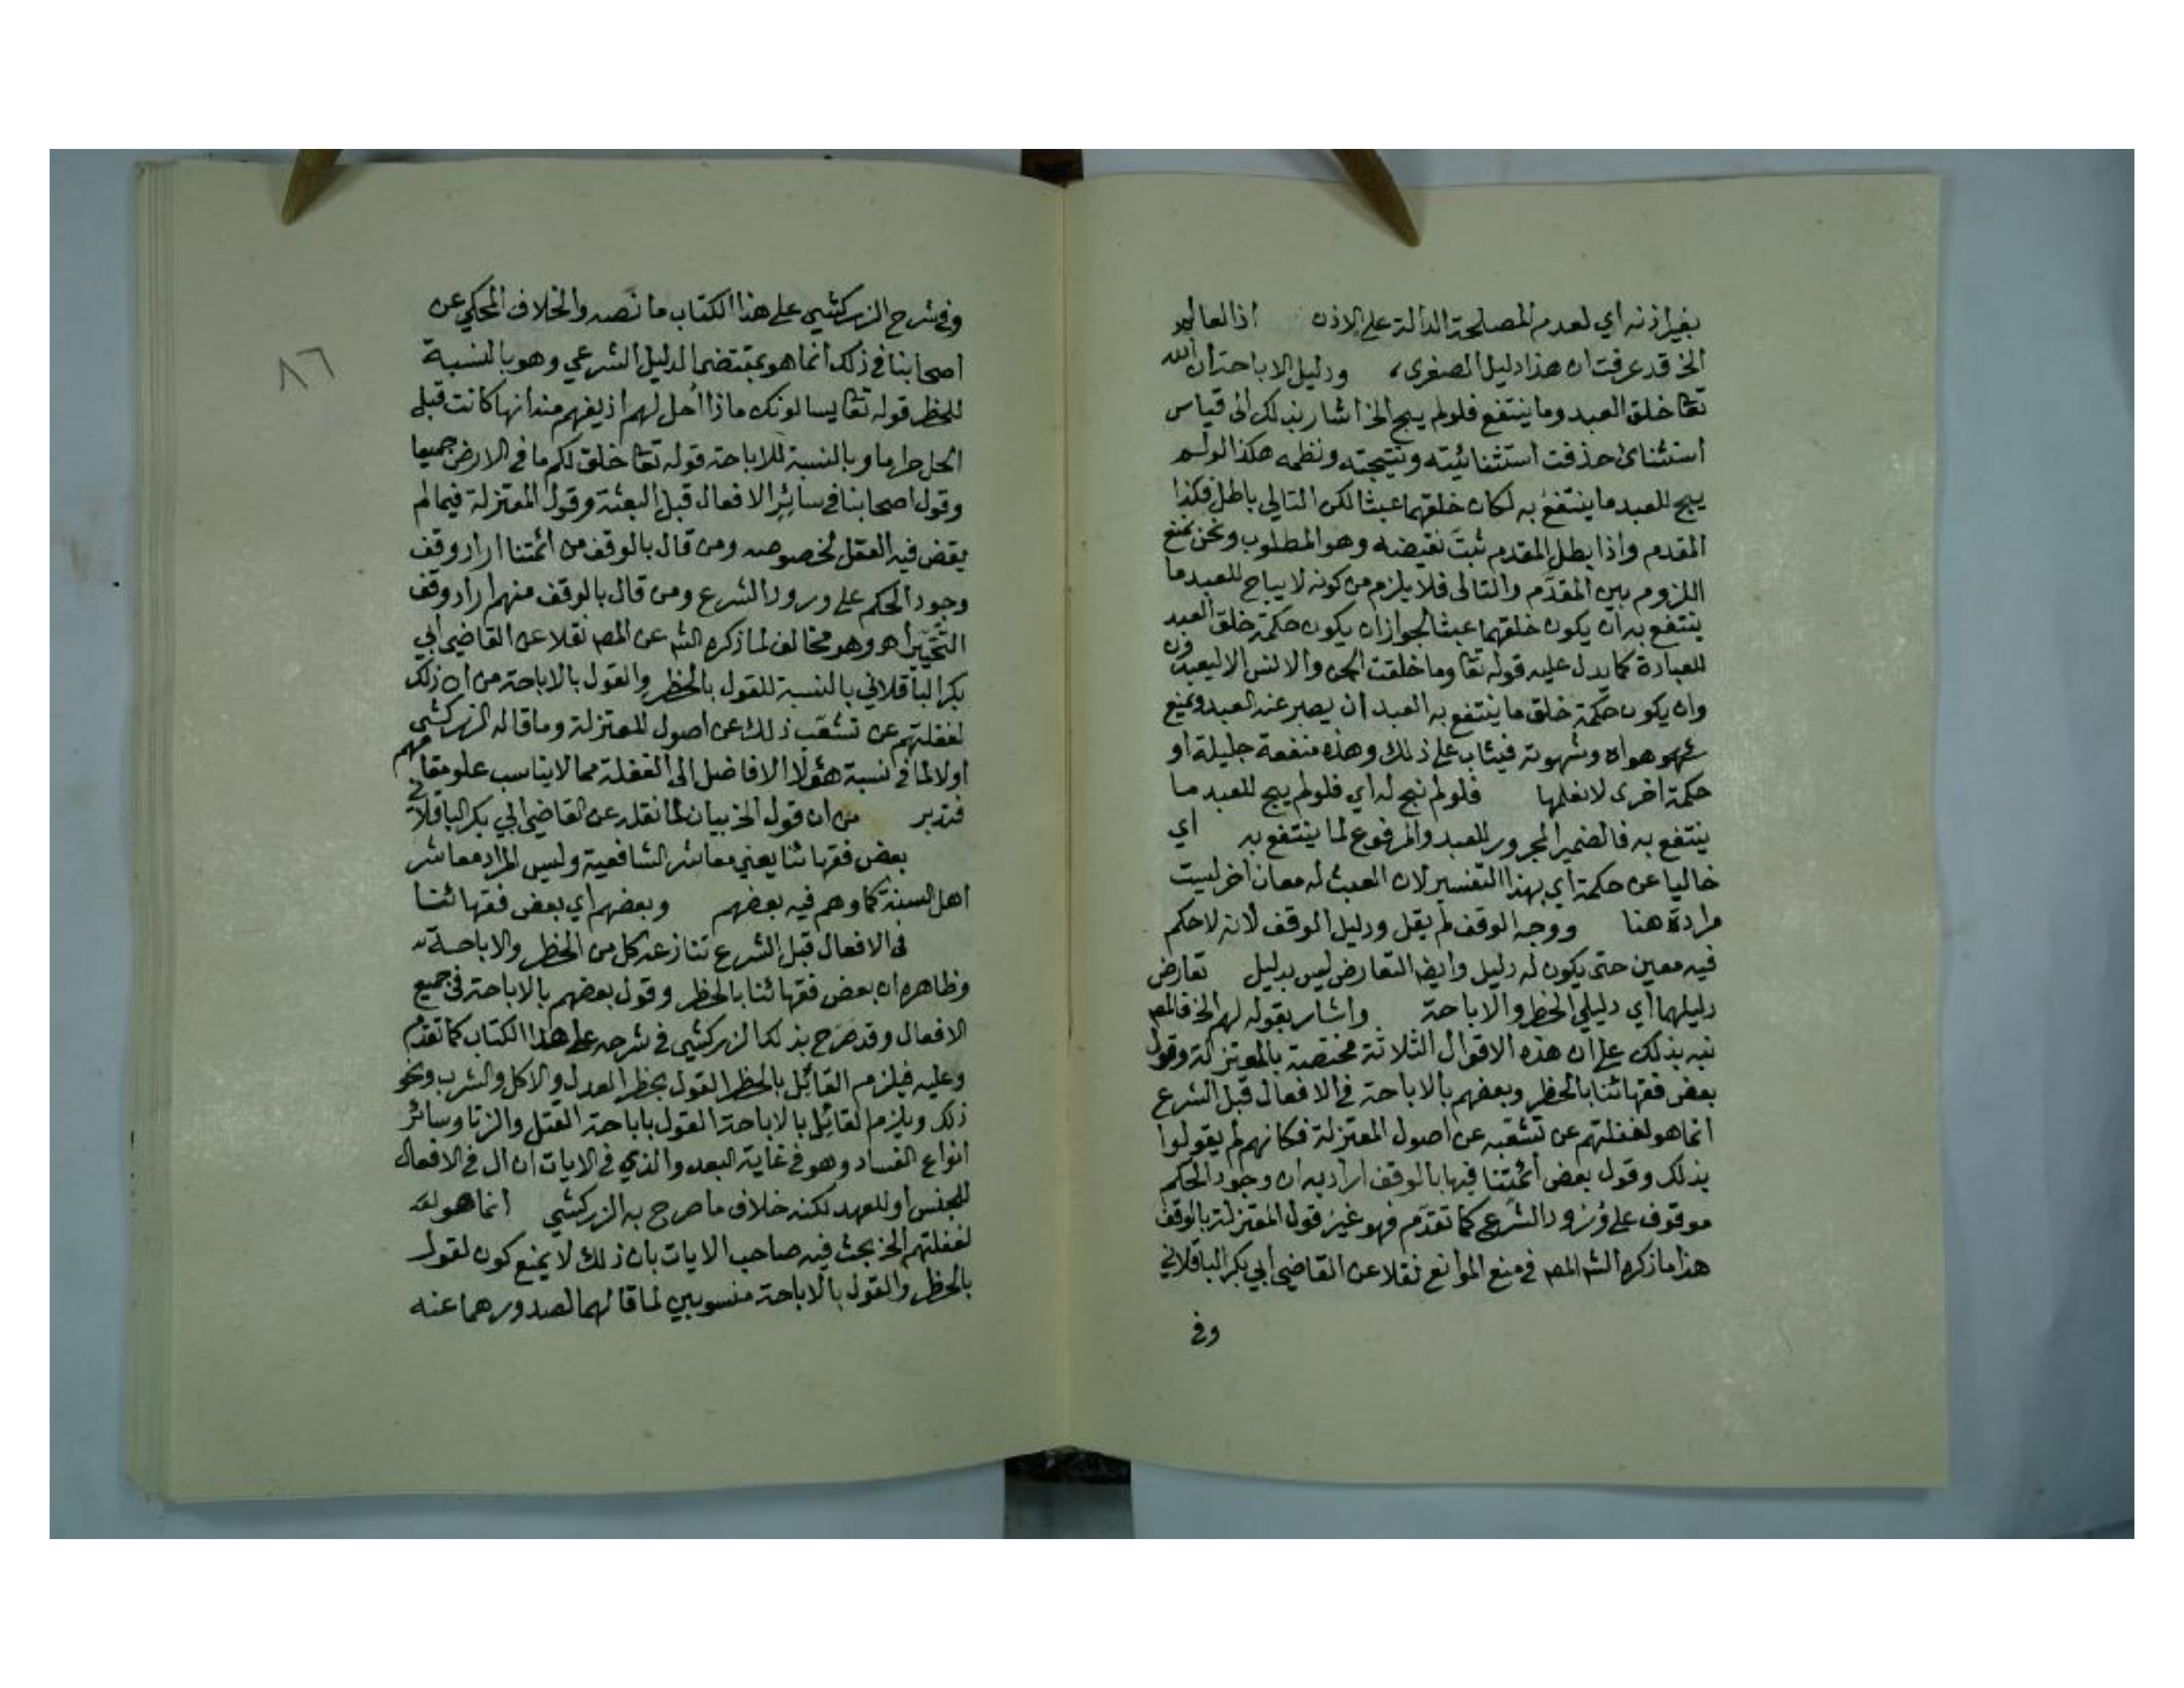 بغير اذنه اي لعدم المصلحة الدالة على الاذن اذ العالم
الخ قد عرفت ان هذا دليل الصغرى، ودليل الاباحة ان الله
تعا خلق العبد وما ينتفع فلو لم يبح الخ اشار بذلك الى قياس
استثنائى حذفت استثنائيته ونتيجته ونظمه هكذا لو لم
يبح للعبد ما ينتفع به لكان خلقهما عبثا لكن التالي باطل فكذا
المقدم واذا بطل المقدم ثبت نقيضه وهو المطلوب ونحن نمنع
اللزوم بين المقدم والتالى فلا يلزم من كونه لا يباح للعبد ما
ينتفع به ان يكون خلقهما عبثا لجواز ان يكون حكمة خلق العبد
للعبادة كما يدل عليه قوله تعا وما خلقت الجن والانس الا ليعبدون
وان يكون حكمة خلق ما ينتفع به العبد ان يصبر عنه العبد ويمنع
هواه وشهوته فيثاب على ذلك وهذه منفعة جليلة او
حكمة اخرى لا نعلمها فلو لم نبح له اي فلو لم يبح للعبد ما
ينتفع به فالضمير المجرور للعبد والمرفوع لما ينتفع به اي
خاليا عن حكمة اي بهذا التفسير لان العبث له معان اخر ليست
مرادة هنا ووجه الوقف لم يقل ودليل الوقف لانه لا حكم
فيه معين حتى يكون له دليل وايضا التعارض ليس بدليل تعارض
دليلهما اي دليلي الحظر والاباحة واشار بقوله لهم الخ فالمصـ
نبه بذلك على ان هذه الاقوال الثلاثة مختصة بالمعتزلة وقول
بعض فقهائنا بالحظر وبعضهم بالاباحة في الافعال قبل الشرع
انما هو لغفلتهم عن تشعبه عن اصول المعتزلة فكانهم لم يقولوا
بذلك وقول بعض ائمتنا فيها بالوقف اراد به ان وجود الحكم
موقوف على ورود الشرع كما تقدم فهو غير قول المعتزلة بالوقف
هذا ما ذكره الشـ المصـ في منع الموانع نقلا عن القاضي ابي بكر الباقلاني
وفي
٨٦
وفي شرح الزركشي على هذا الكتاب ما نصه والخلاف المحكي عن
اصحابنا في ذلك انما هو بمقتضى الدليل الشرعي وهو بالنسبة
للحظر قوله تعا يسالونك ماذا احل لهم اذ يفهم منه انها كانت قبل
الحل حراما وبالنسبة للاباحة قوله تعا خلق لكم ما في الارض جميعا
وقول اصحابنا في سائر الافعال قبل البعثة وقول المعتزلة فيما لم
يقض فيه العقل لخصوصه ومن قال بالوقف من ائمتنا اراد وقف
وجود الحكم على ورود الشرع ومن قال بالوقف منهم اراد وقف
التحير اهـ وهو مخالف لما ذكره الشـ عن المصـ نقلا عن القاضي ابي
بكر الباقلاني بالنسبة للقول بالحظر والقول بالاباحة من ان ذلك
لغفلتهم عن تشعب ذلك عن اصول المعتزلة وما قاله الزركشي
اولا لما في نسبة هؤلا الافاضل الى الغفلة مما لا يناسب علو مقامهم
فتدبر من ان قول الخ بيان لما نقله عن القاضي ابي بكر الباقلاني
بعض فقهائنا يعني معاشر الشافعية وليس المراد معاشر
اهل السنة كما وهم فيه بعضهم وبعضهم اي بعض فقهائنا
فى الافعال قبل الشرع تنازعه كل من الحظر والاباحة
وظاهره ان بعض فقهائنا بالحظر وقول بعضهم بالاباحة في جميع
الافعال وقد صرح بذلك الزركشي في شرحه على هذا الكتاب كما تقدم
وعليه فيلزم القائل بالحظر القول بحظر العدل والاكل والشرب ونحو
ذلك ويلزم القائل بالاباحة القول باباحة القتل والزنا وسائر
انواع الفساد وهو في غاية البعد والذي في الايات ان ال في الافعال
للجنس او للعهد لكنه خلاف ما صرح به الزركشي انما هو
لغفلتهم الخ بحث فيه صاحب الايات بان ذلك لا يمنع كون القول
بالحظر والقول بالاباحة منسوبين لما قالهما لصدورهما عنه